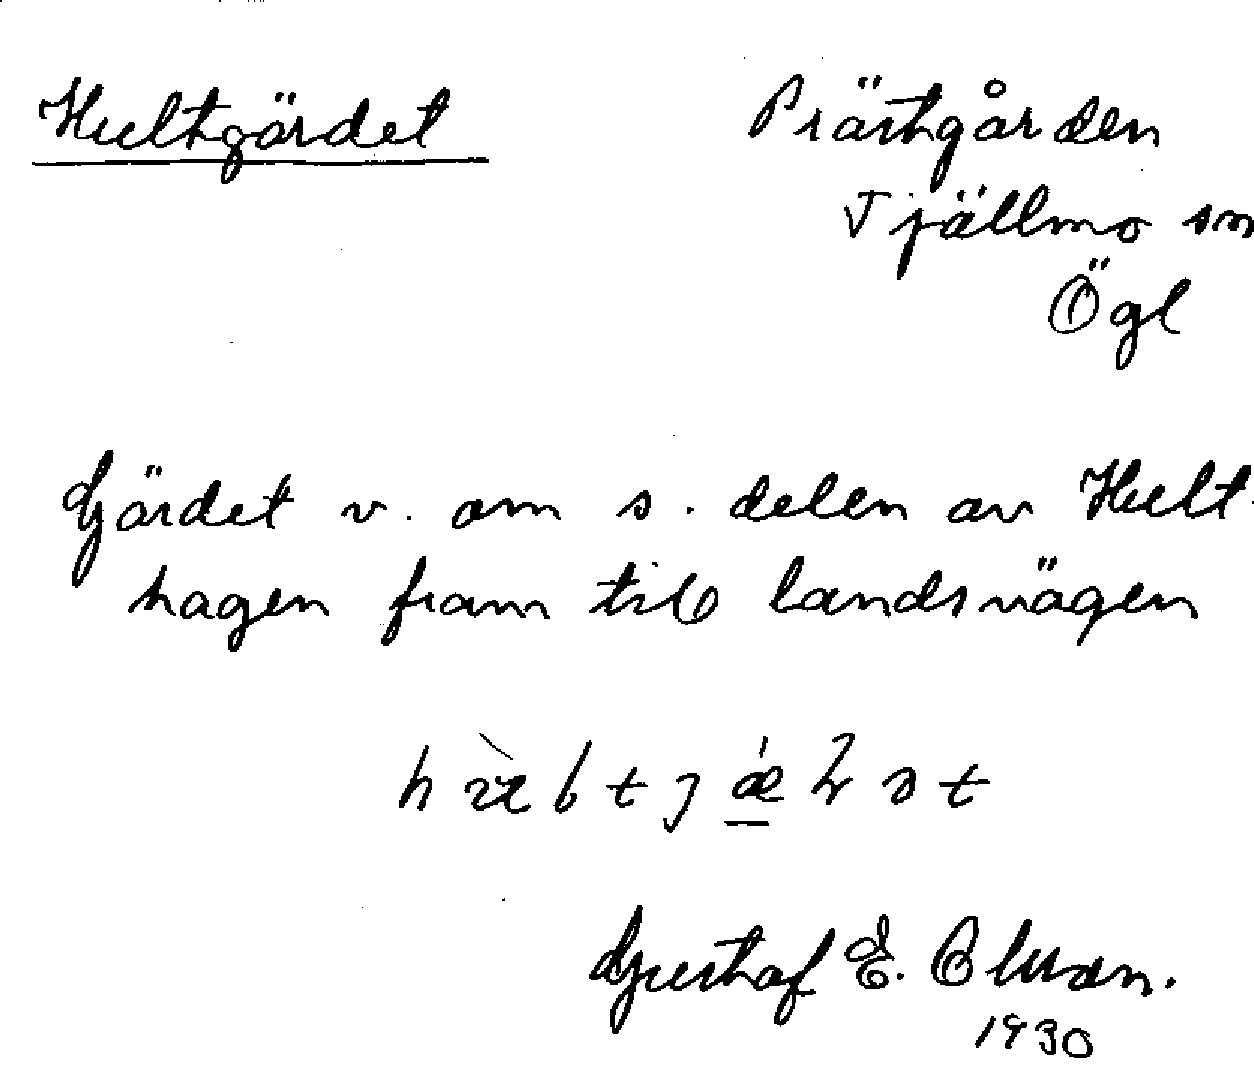 Hultgärdet
Prästgården
Tjällmo sn
Ögl
Gärdet v. om s. delen av Hult
hagen fram till landsvägen
Gustaf E.
1930